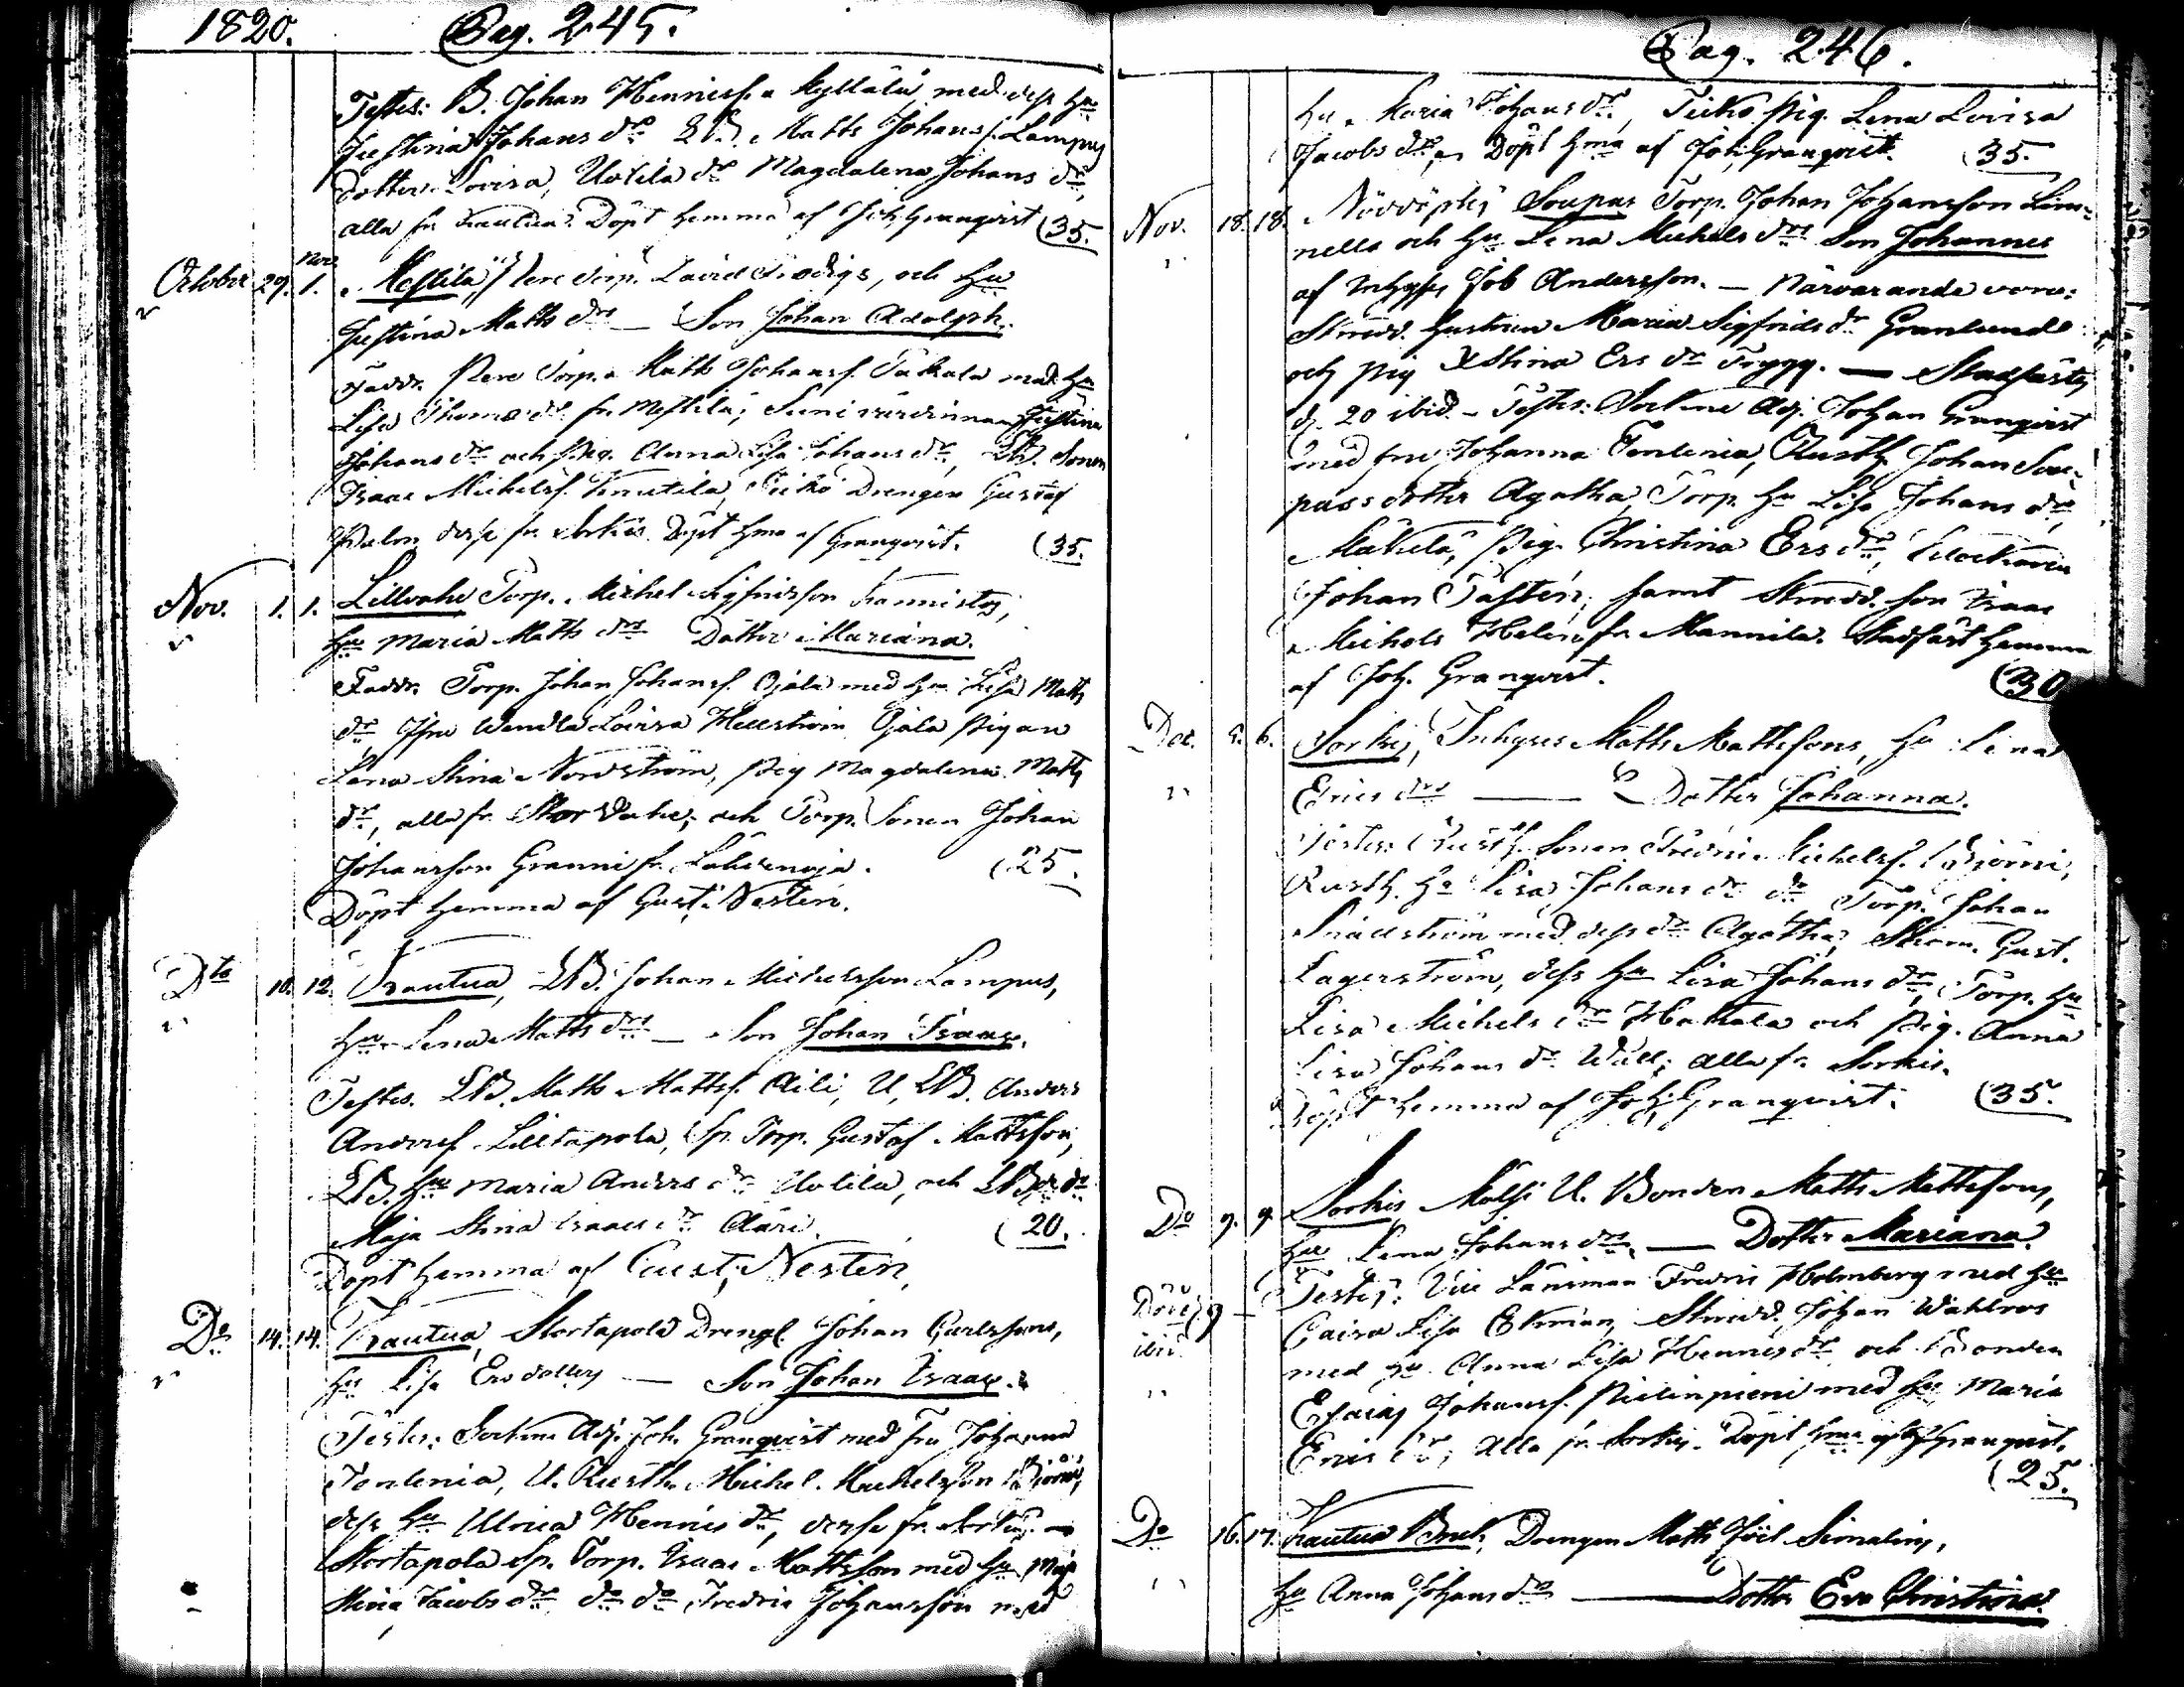 1820. Pag. 245.
Testes: B. Johan Hennicss. Kyllälä med dess Hu
Justina Johans dr LB. Matts Johanss. Lampus
Dotter Lovisa, Uotila dr Magdalena Johans dr,
alla fr. Kautua. Döpt hemma af Joh. Granqvist (35.
October 29. Nov. 1. Mestilä, Torp. David, och Hu
Justina Matts drs — Son Johan Adolph.
Faddr. Torp. Matts Johanss. Takala med Hu
Lisa Thomæ dr fr. Mestilä, värdinnan Justina
Johans dr och Pig. Anna Lisa Johans dr, LB. Sonen
Isaac Michelss. Knutila, Drengen Gustaf
Palm, desse fr. Sorkis. Döpt hma af Granqvist. (35.
Nov. 1. 1. Lillvahe Torp. Michel Sigfridsson Kannistos,
Hu Maria Matts drs Dotter Mariana.
Faddr. Torp. Johan Johanss. Ojala med Hu Lisa Matts
dr Jfru Wendla Lovisa Hellström, Ojala Pigan
Lena Stina Nordström, Pig Magdalena Matts
dr, alla fr. Storvahe; och Torp. Sonen Johan
Johansson Granni fr. Lähdenoja. (25.
Döpt hemma af Gust. Nestén.
Dto 10. 12. Kautua, LB. Johan Michelsson Lampus,
Hu Lena Matts drs — Son Johan Isaac.
Testes. LB. Matts Mattss. Äili, U. LB. Anders
Anderss. Lilltapola, Sp. Torp. Gustaf Mattsson,
LB. Hu Maria Anders dr Uotila, och LB. dr
Maja Stina Isaacs dr Ääri. (20.
Döpt hemma af Gust. Nestén.
Do 14. 14. Kautua, Stortapola Drengs Johan Carlssons,
Hu Lisa Ersdotters — Son Johan Isaac.
Testes: Sockne Adj. Joh. Granqvist med Fru Johanna
Tenlenia, U. Rusth. Michel Michelsson Björni,
dess Hu Ulrica Hennics dr, desse fr. Sorkis —
Stortapola Sp. Torp. Isaac Mattsson med Hu Maja
Stina Jacobs dr, do do Fredric Johansson med
Pag. 246.
Hu Maria Johans dr, Pig. Lena Lovisa
Jacobs dr, Döpt hma af Joh. Granqvist. (35.
Nov. 18. 18. Soupas Torp. Johan Johansson Linnells
och Hu Lena Michels drs Son Johannes
af Inhyses Job Andersson. — Närvarande voro:
Smedd. hustrun Maria Sigfrids dr Granlund
och Pig Stina Ers dr Trygg. — Stadfäst
d. 20 ibid. — Testes: Sockne Adj. Johan Granqvist
med fru Johanna Tenlenia, Rusth. Johan Soupas
dotter Agatha, Torp. Hu Lisa Johans dr
Mäkelä, Pig. Christina Ers dr, Klockaren
Johan Pastén, samt Smedd. son Isaac
Michels Helin fr. Mannila. Stadfäst hemma
af Joh. Granqvist. (30
Dec. 5. 6. Sorkis, Inhyses Matts Mattssons, Hu Lena
Erics drs — Dotter Johanna.
Testes: Rusth. Sonen Fredric Michelss. Björni,
Rusth. Hu Lisa Johans dr do Torp. Johan
med dess dr Agatha, Gust.
Lagerström, dess Hu Lisa Johans dr, Torp. Hu
Lisa Michels dr Hakala och Pig. Anna
Lisa Johans dr Wall; alla fr. Sorkis.
Döpt hemma af Joh. Granqvist. (35.
Do 9. 9. Sorkis Mälsi U. Bonden Matts Mattssons,
Hu Lena Johans drs — Dotter Mariana.
Testes: Vice Länsman Fredric Holmberg med Hu
Caisa Lisa Ekman, Smedd. Johan Wahlroos
med Hu Anna Lisa Hennics dr och Bonden
Esaias Johanss. med Hu Maria
Erics dr; alla fr. Sorkis. Döpt hma af Joh. Granqvist.
(25.
Do 16. 17. Kautua Bruk, Drengen Matts Joel Simalins,
Hu Anna Johans drs — Dotter Eva Christina.